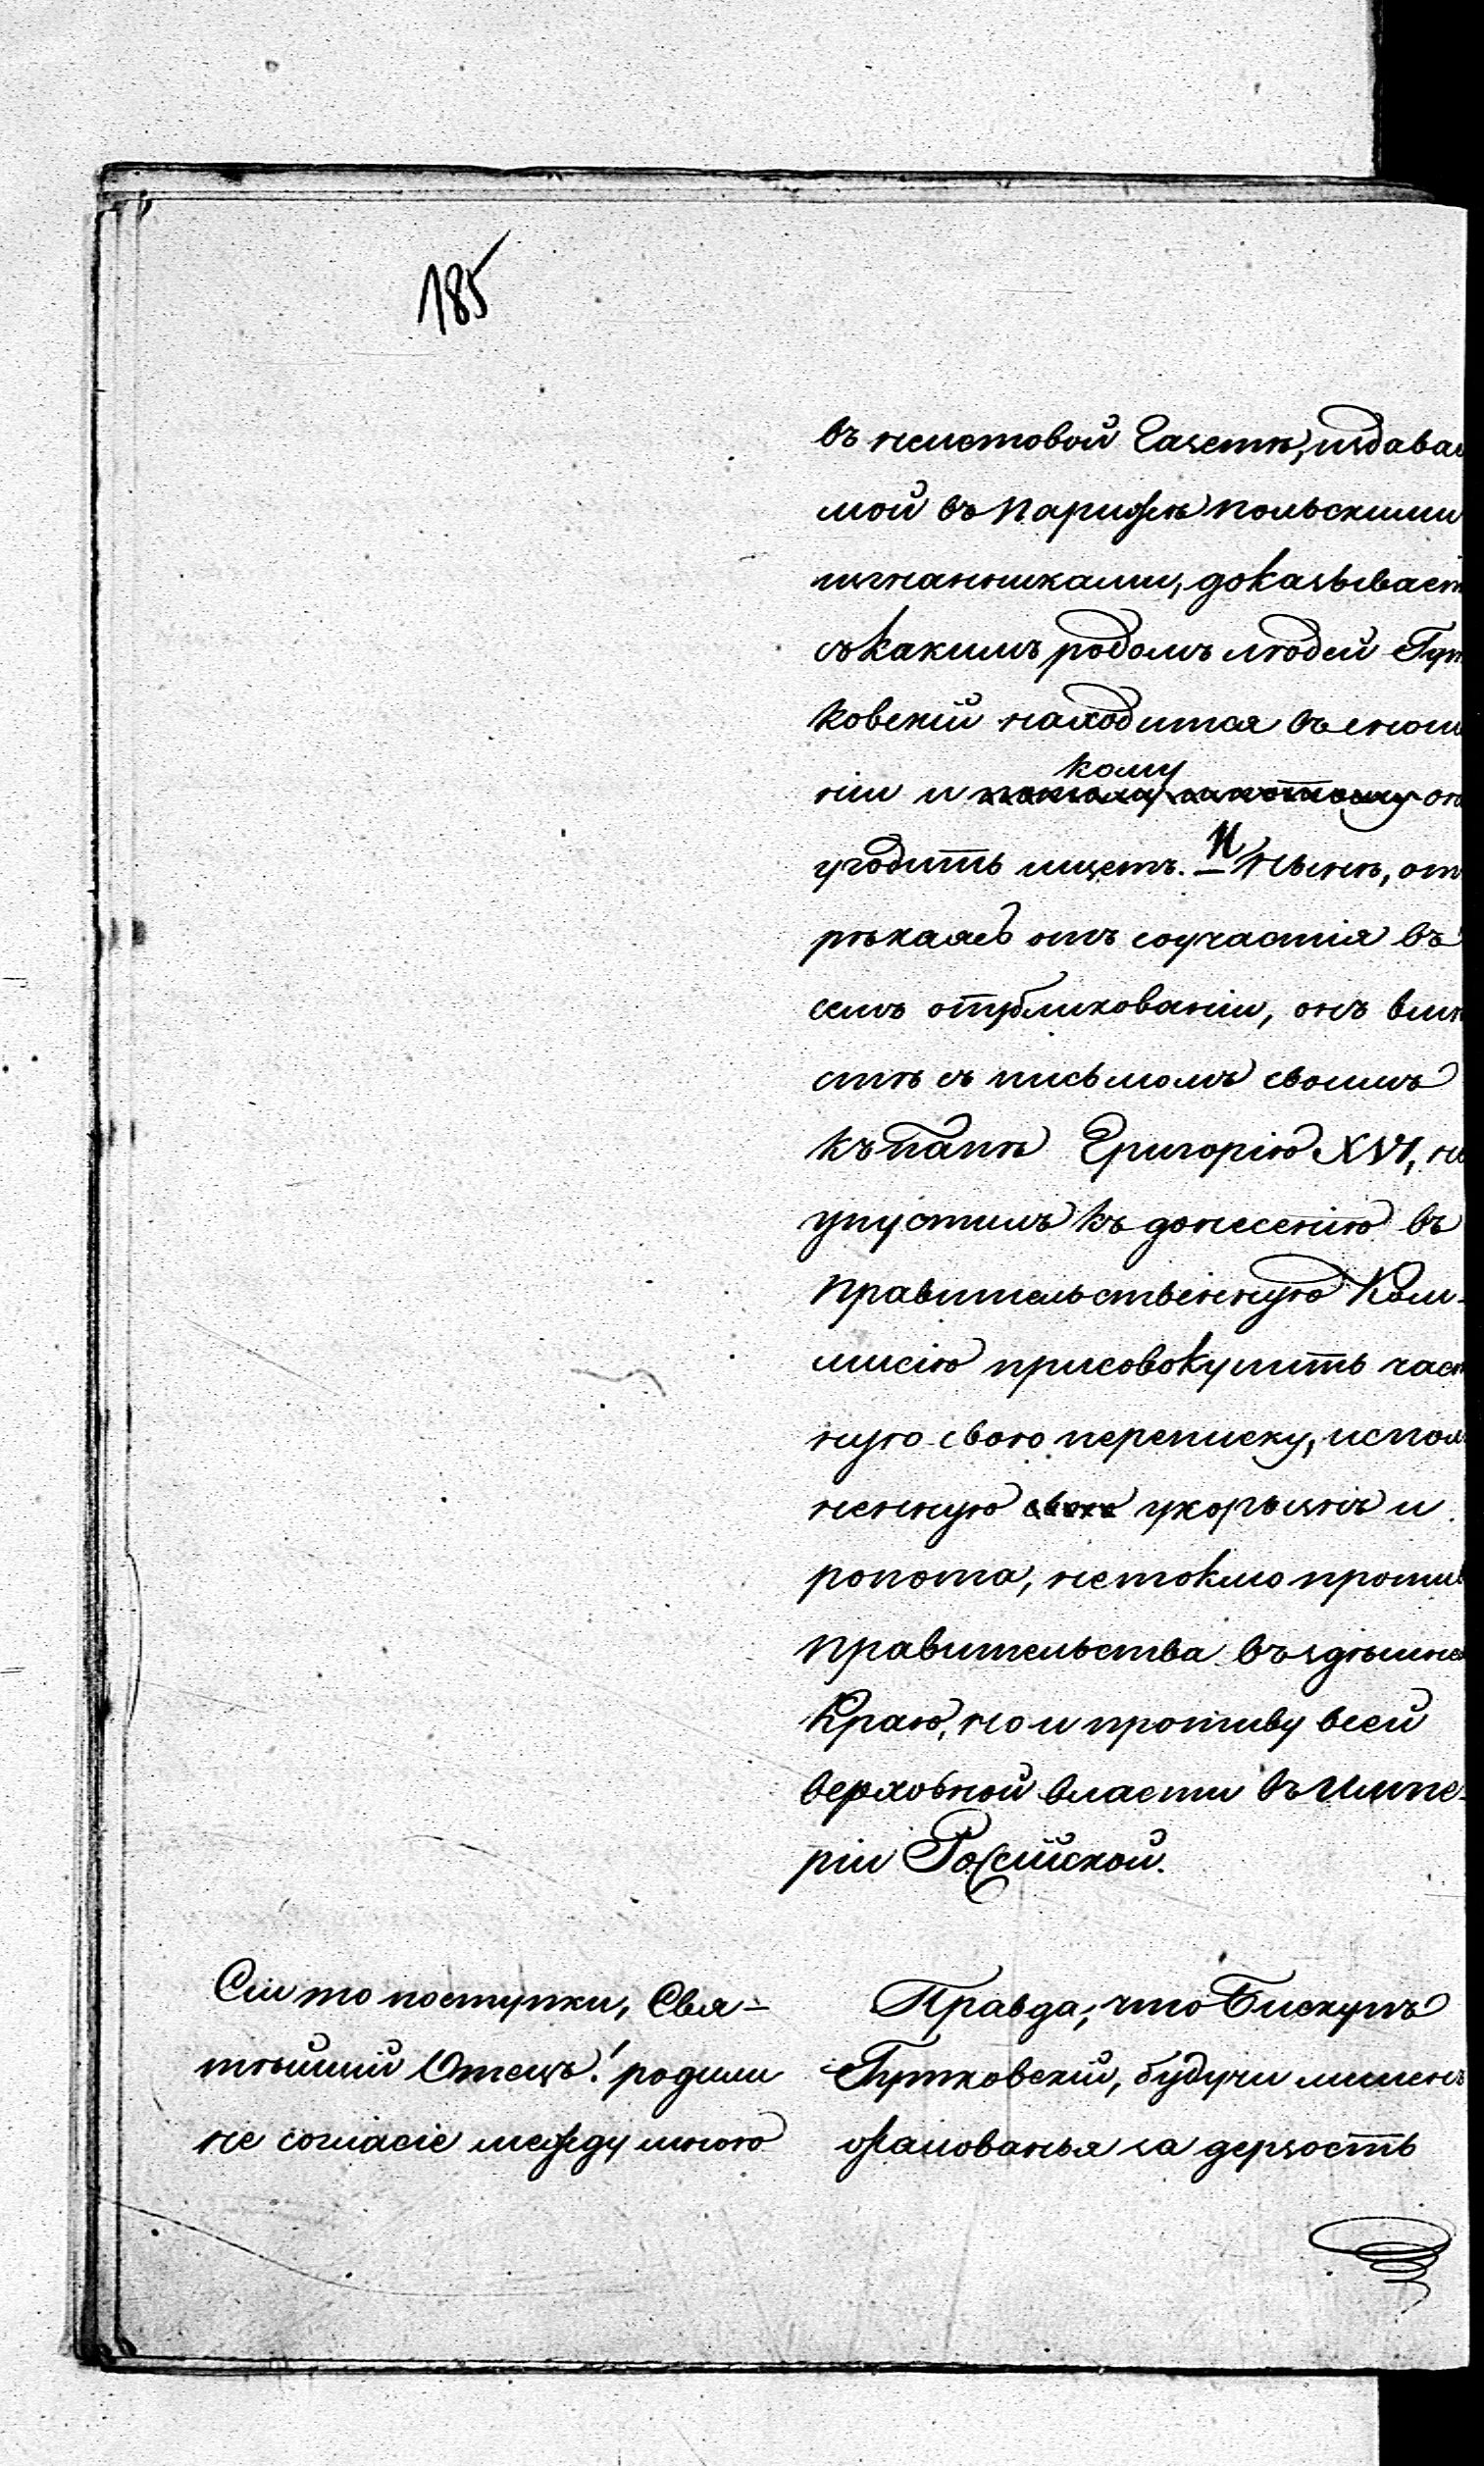 185
въ неистовой Газетѣ, издавае
мой въ Парижѣ польскими
изгнанниками, доказывает
съ какимъ родомъ людей Гут
ковскій находится въ сноше
ніи и кому он
угодить ищетъ. И нынѣ, от
рѣкаясь отъ соучастія въ
семъ отпубликованіи, онъ вмѣ
стѣ съ письмомъ своимъ
къ Папѣ Григорію XVI, не
упустилъ къ донесенію въ
Правительственную Ком-
мисію присовокупить част
ную свою переписку, испол
ненную укоризнъ и
ропота, не токмо против
Правительства въ здѣшнем
Краю, но и противу всей
верховной власти въ Импе-
ріи Россійской.
Сіи то поступки, Свя-
тѣйшій Отецъ! родили
не согласіе между мною
Правда, что Бискупъ
Гутковскій, будучи лишенъ
жалованья за дерзость